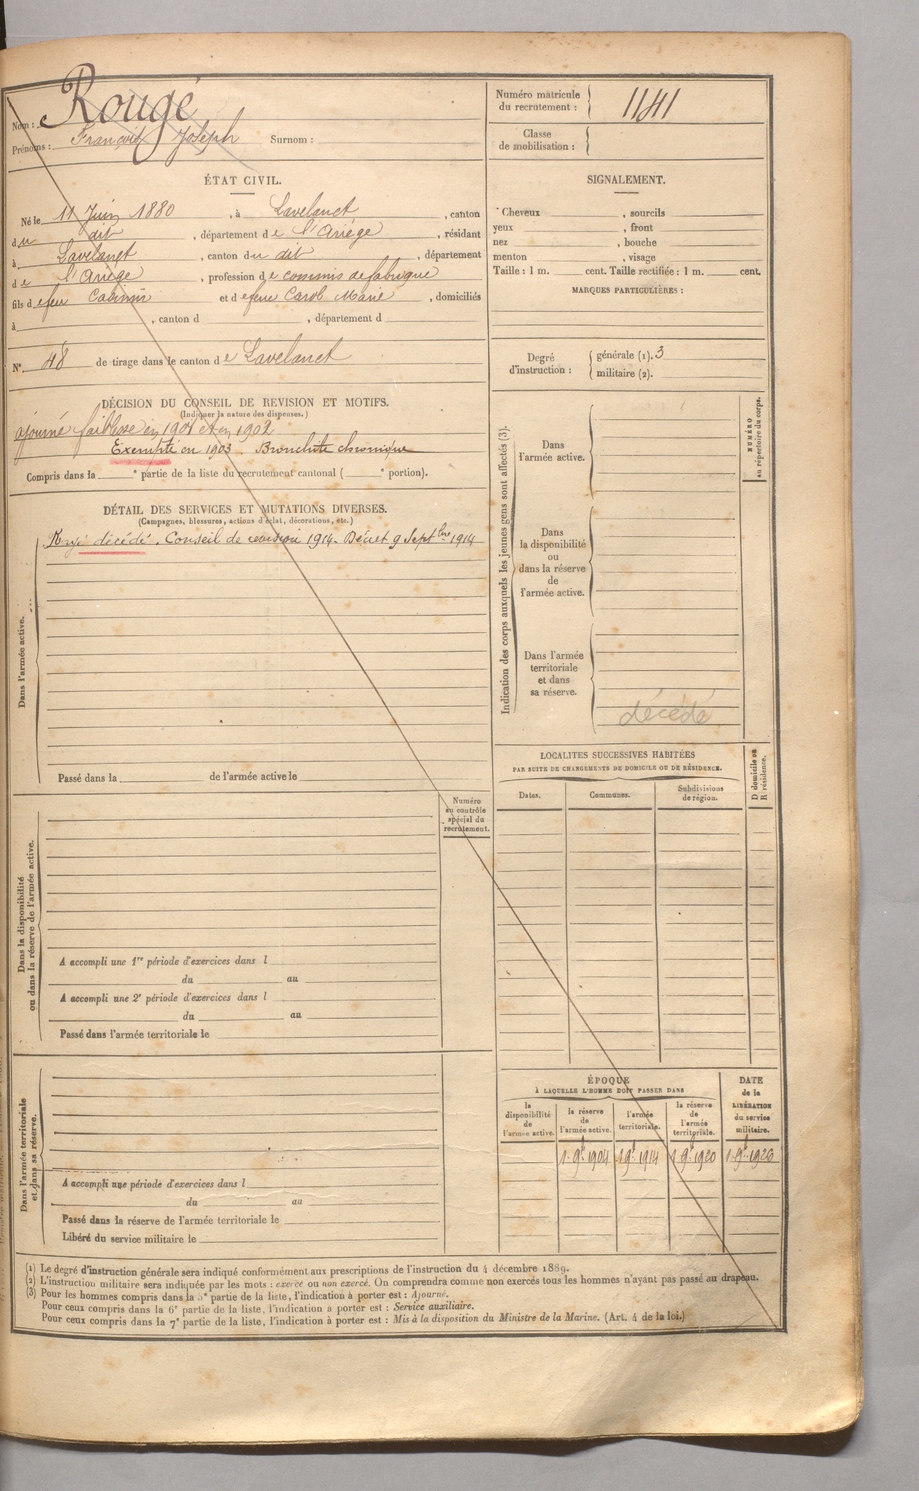 Nom : Rougé
Prénoms : François Joseph Surnom :
Numéro matricule du recrutement : 1141
Classe de mobilisation :
ÉTAT CIVIL.
Né le 11 Juin 1880, à Lavelanet, canton
du dit, département de l'Ariège, résidant
à Lavelanet, canton du dit, département
de l'Ariège, profession de commis de fabrique
fils de feu Casimir et de feue Carol Marie, domiciliés
à , canton d , département d
N° 48 de tirage dans le canton de Lavelanet
SIGNALEMENT.
Cheveux , sourcils
yeux , front
nez , bouche
menton , visage
Taille : 1 m. cent. Taille rectifiée : 1 m. cent.
MARQUES PARTICULIÈRES :
Degré d'instruction : générale (1). 3
militaire (2).
DÉCISION DU CONSEIL DE REVISION ET MOTIFS.
(Indiquer la nature des dispenses.)
ajourné faiblesse en 1901 et en 1902
Exempté en 1903 Bronchite chronique
Compris dans la e partie de la liste du recrutement cantonal ( e portion).
DÉTAIL DES SERVICES ET MUTATIONS DIVERSES.
(Campagnes, blessures, actions d'éclat, décorations, etc.)
décédé. Conseil de revision 1914. Décret 9 Septbre 1914
Dans l'armée active.
Passé dans la de l'armée active le
Indication des corps auxquels les jeunes gens sont affectés (3).
Dans l'armée active.
Dans la disponibilité ou dans la réserve de l'armée active.
Dans l'armée territoriale et dans sa réserve.
décédé
NUMÉRO au répertoire du corps.
LOCALITES SUCCESSIVES HABITÉES
PAR SUITE DE CHANGEMENTS DE DOMICILE OU DE RÉSIDENCE.
Dates. Communes. Subdivisions de région.
D domicile ou R résidence.
Numéro au contrôle spécial du recrutement.
Dans la disponibilité ou dans la réserve de l'armée active.
A accompli une 1re période d'exercices dans l
du au
A accompli une 2e période d'exercices dans l
du au
Passé dans l'armée territoriale le
Dans l'armée territoriale et dans sa réserve.
A accompli une période d'exercices dans l
du au
Passé dans la réserve de l'armée territoriale le
Libéré du service militaire le
ÉPOQUE
À LAQUELLE L'HOMME DOIT PASSER DANS
la disponibilité de l'armée active. la réserve de l'armée active. l'armée territoriale. la réserve de l'armée territoriale.
DATE de la LIBÉRATION du service militaire.
1 9bre 1904 1 9bre 1914 1 9bre 1920 1 9bre 1926
(1) Le degré d'instruction générale sera indiqué conformément aux prescriptions de l'instruction du 4 décembre 1889.
(2) L'instruction militaire sera indiquée par les mots : exercé ou non exercé. On comprendra comme non exercés tous les hommes n'ayant pas passé au drapeau.
(3) Pour les hommes compris dans la 5e partie de la liste, l'indication à porter est : Ajourné.
Pour ceux compris dans la 6e partie de la liste, l'indication à porter est : Service auxiliaire.
Pour ceux compris dans la 7e partie de la liste, l'indication à porter est : Mis à la disposition du Ministre de la Marine. (Art. 4 de la loi.)